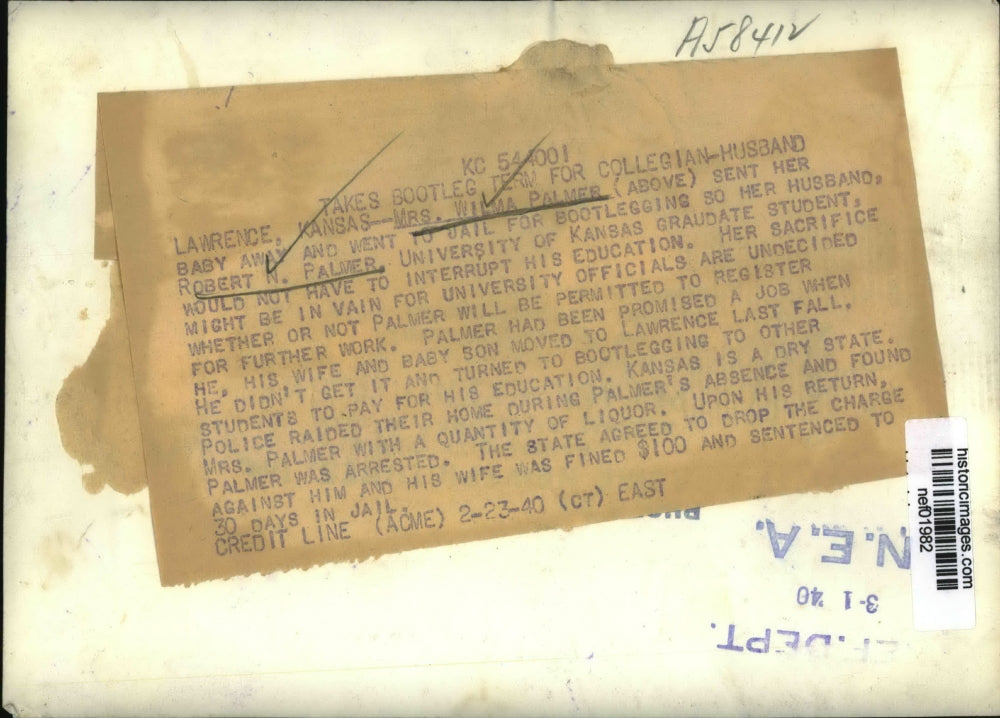 A58412
KC 544001
TAKES BOOTLEG TERM FOR COLLEGIAN-HUSBAND
LAWRENCE, KANSAS--MRS. WILMA PALMER (ABOVE) SENT HER
BABY AWAY AND WENT TO JAIL FOR BOOTLEGGING SO HER HUSBAND,
ROBERT N. PALMER, UNIVERSITY OF KANSAS GRAUDATE STUDENT,
WOULD NOT HAVE TO INTERRUPT HIS EDUCATION. HER SACRIFICE
MIGHT BE IN VAIN FOR UNIVERSITY OFFICIALS ARE UNDECIDED
WHETHER OR NOT PALMER WILL BE PERMITTED TO REGISTER
FOR FURTHER WORK. PALMER HAD BEEN PROMISED A JOB WHEN
HE, HIS WIFE AND BABY SON MOVED TO LAWRENCE LAST FALL.
HE DIDN'T GET IT AND TURNED TO BOOTLEGGING TO OTHER
STUDENTS TO PAY FOR HIS EDUCATION. KANSAS IS A DRY STATE.
POLICE RAIDED THEIR HOME DURING PALMER'S ABSENCE AND FOUND
MRS. PALMER WITH A QUANTITY OF LIQUOR. UPON HIS RETURN,
PALMER WAS ARRESTED. THE STATE AGREED TO DROP THE CHARGE
AGAINST HIM AND HIS WIFE WAS FINED $100 AND SENTENCED TO
30 DAYS IN JAIL.
CREDIT LINE (ACME) 2-23-40 (CT) EAST
historicimages.com
nef01982
N.E.A.
3-1 '40
DEPT.